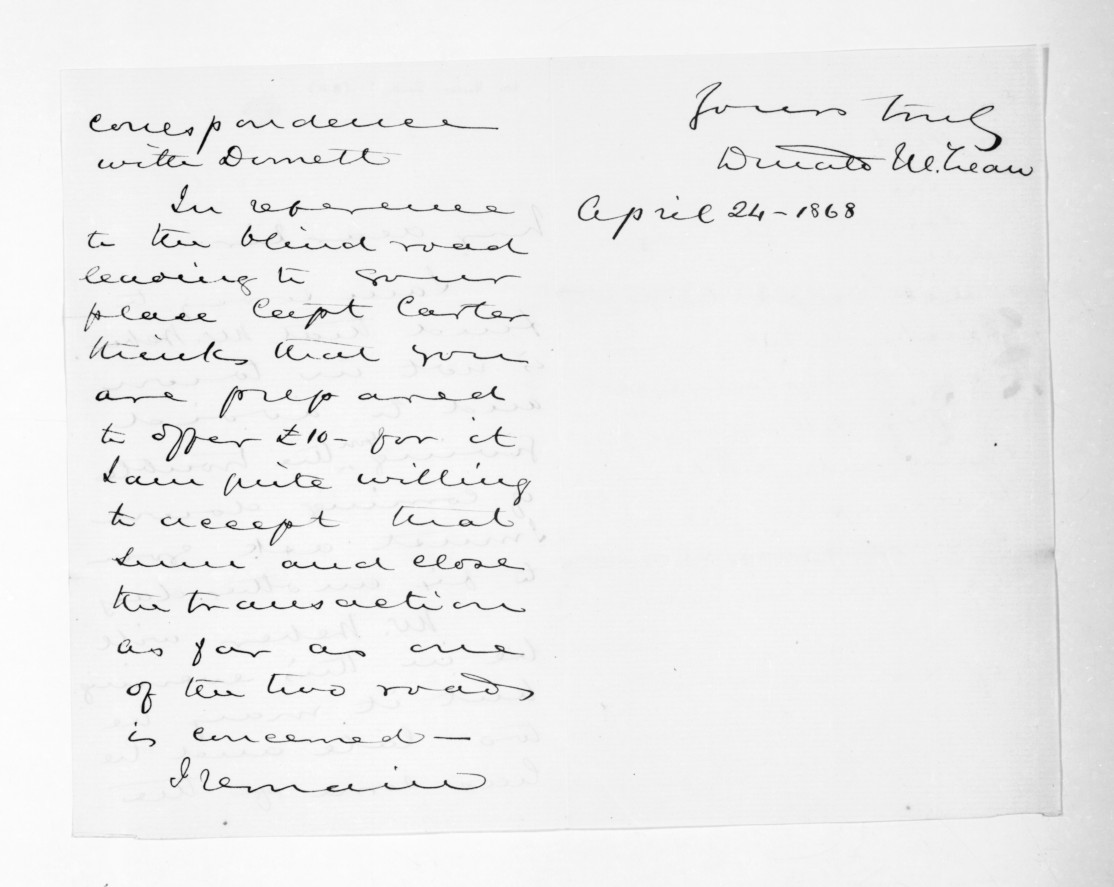 correspondence
with Domett
In reference
to the blind road
leading to your
place Capt Carter
thinks that you
are prepared
to offer £10 - for it
I am quite willing
to accept that
sum and close
the transaction
as far as one
of the two roads
is concerned -
I remain
Yours truly
Donald McLean
April 24 - 1868